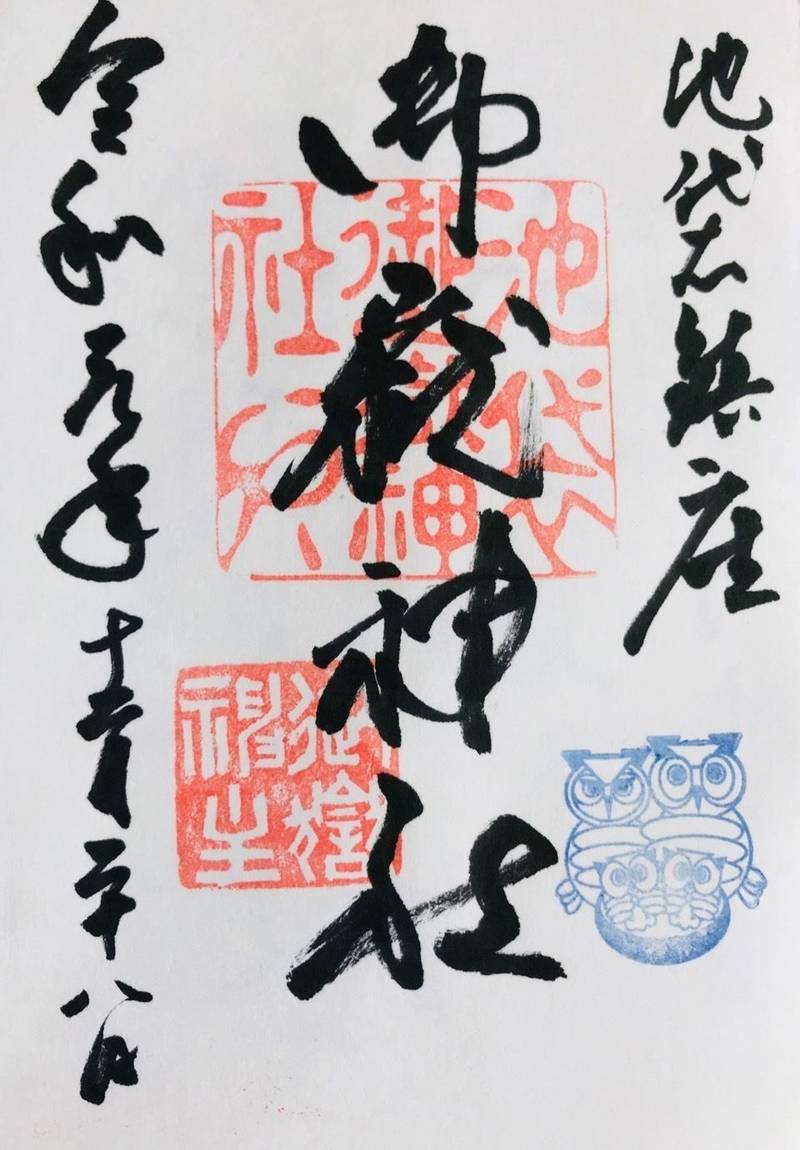 池袋鎮座
御嶽神社
令和元年十二月二十八日
池袋
御嶽神
社
御嶽